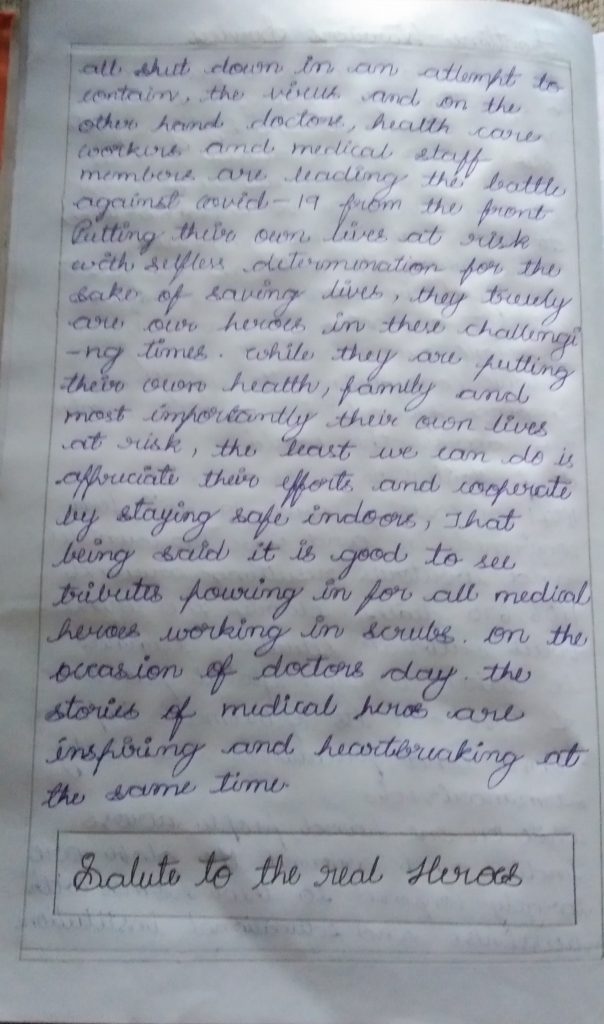 all shut down in an attempt to
contain, the virus and on the
other hand doctors, health care
workers and medical staff
members are leading the battle
against covid-19 from the front
Putting their own lives at risk
with selfless determination for the
sake of saving lives, they truely
are our heroes in these challengi
-ng times. while they are putting
their own health, family and
most importantly their own lives
at risk, the least we can do is
appreciate their efforts and cooperate
by staying safe indoors, That
being said it is good to see
tributes pouring in for all medical
heroes working in scrubs. on the
occasion of doctors day. the
stories of medical heros are
inspiring and heartbreaking at
the same time.
Salute to the real Heroes